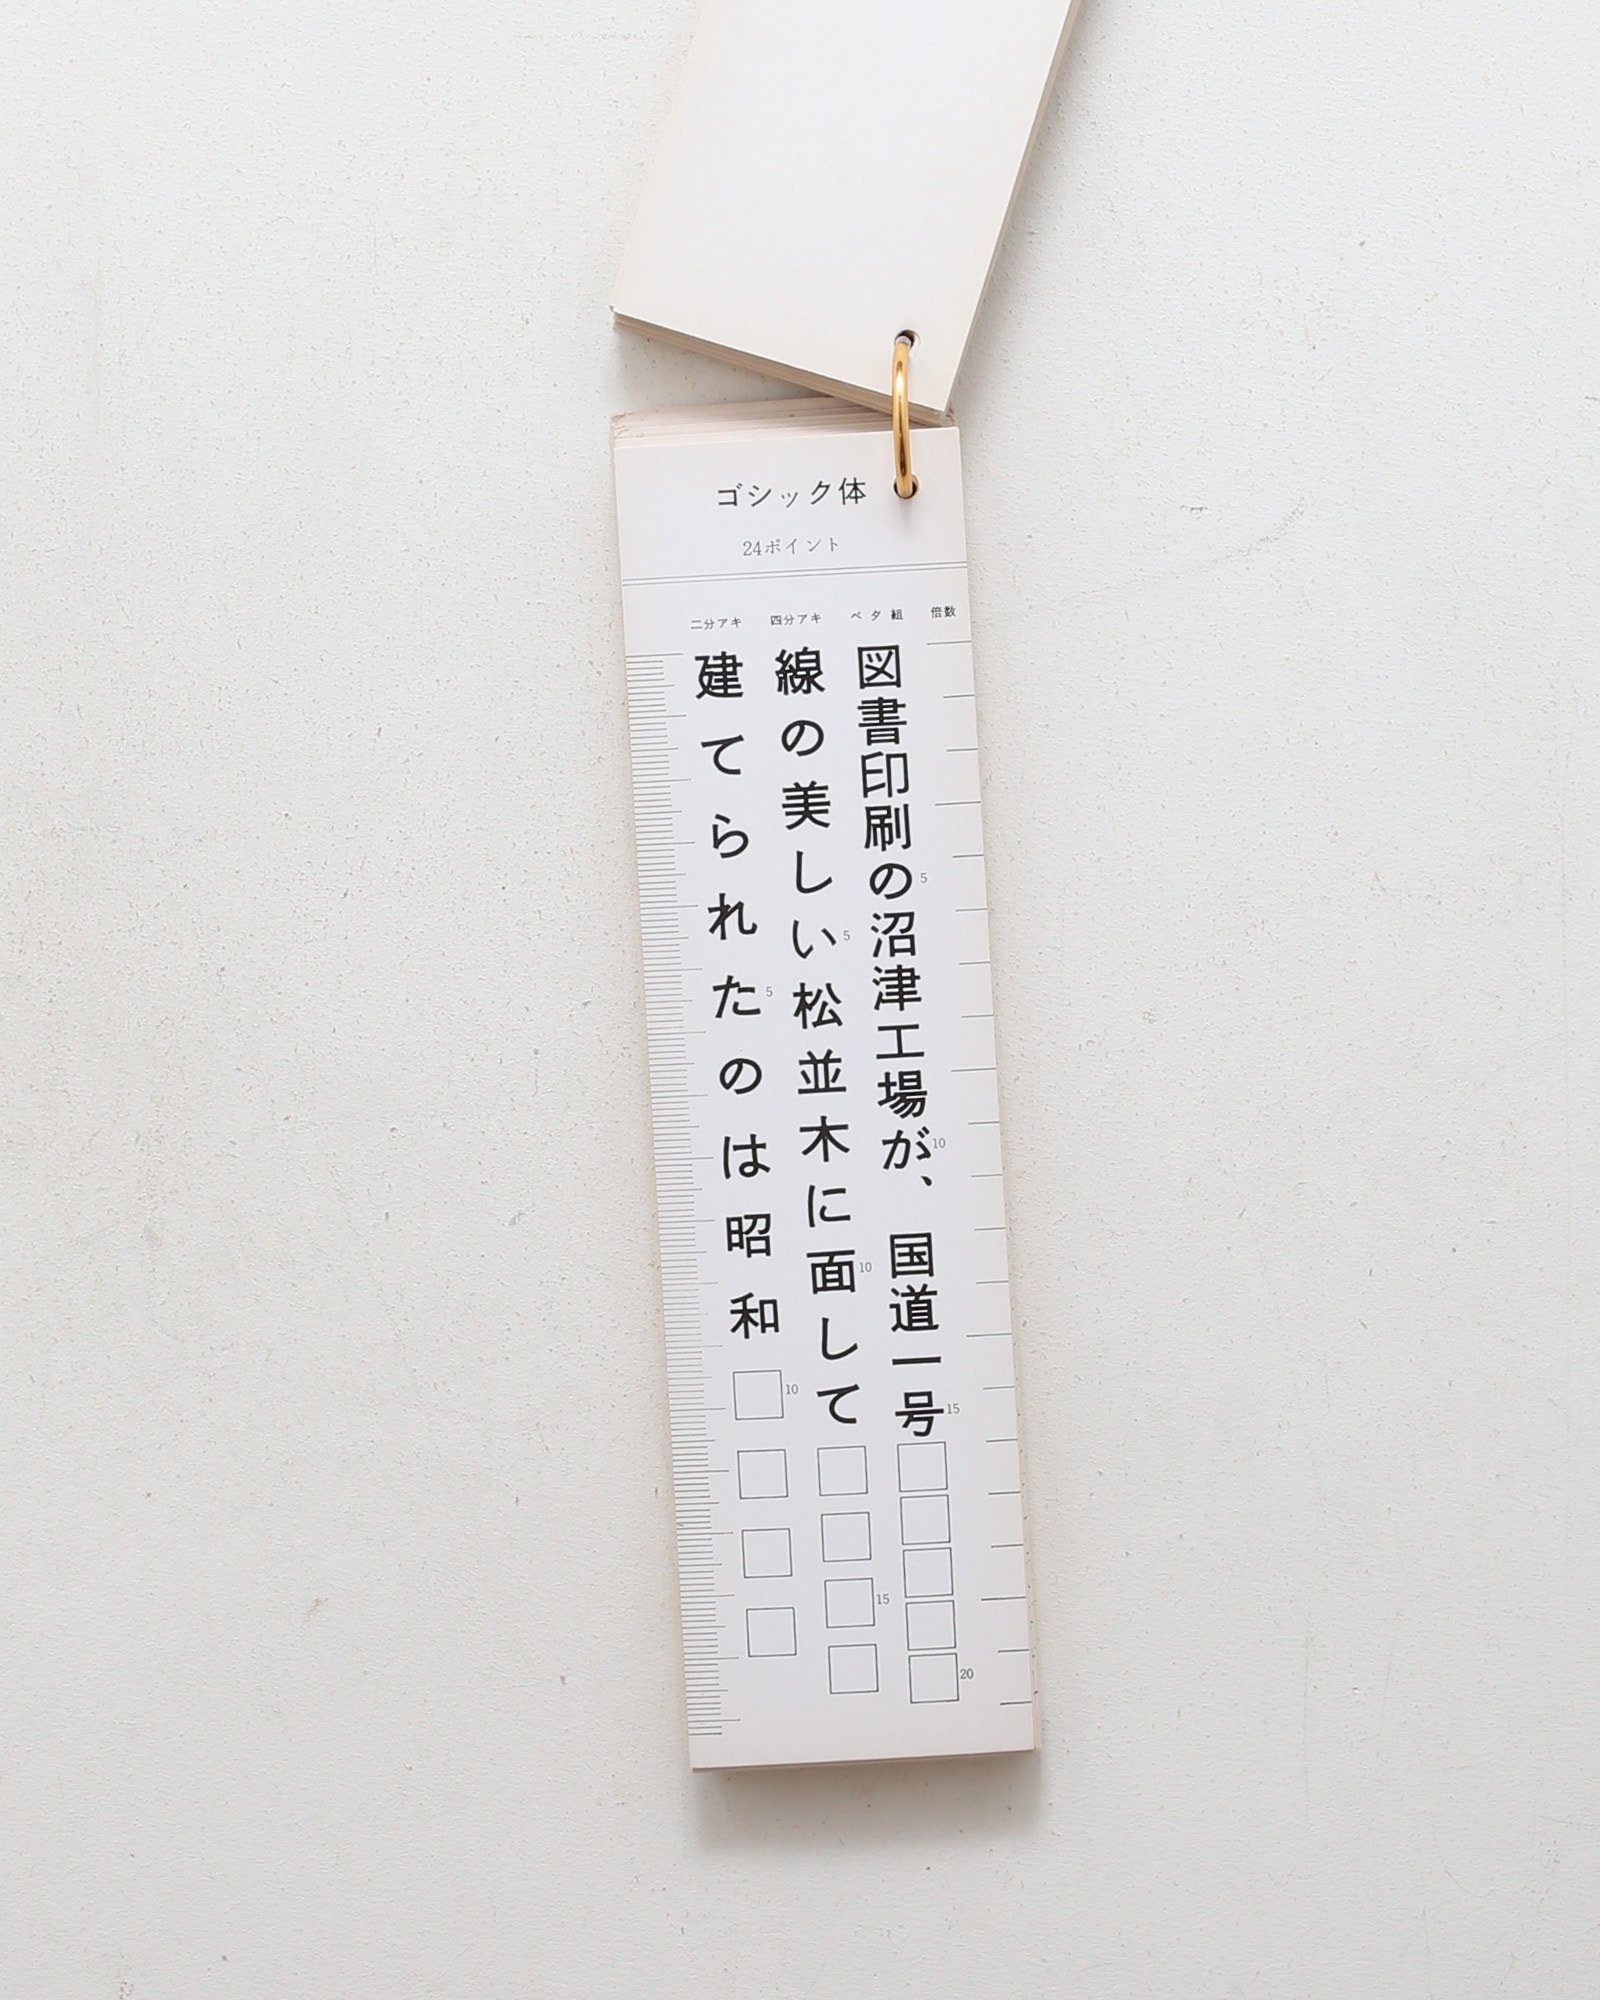 ゴシック体
24ポイント
倍数
ベタ組
四分アキ
二分アキ
図書印刷の沼津工場が、国道一号
5
10
15
20
線の美しい松並木に面して
5
10
15
建てられたのは昭和
5
10